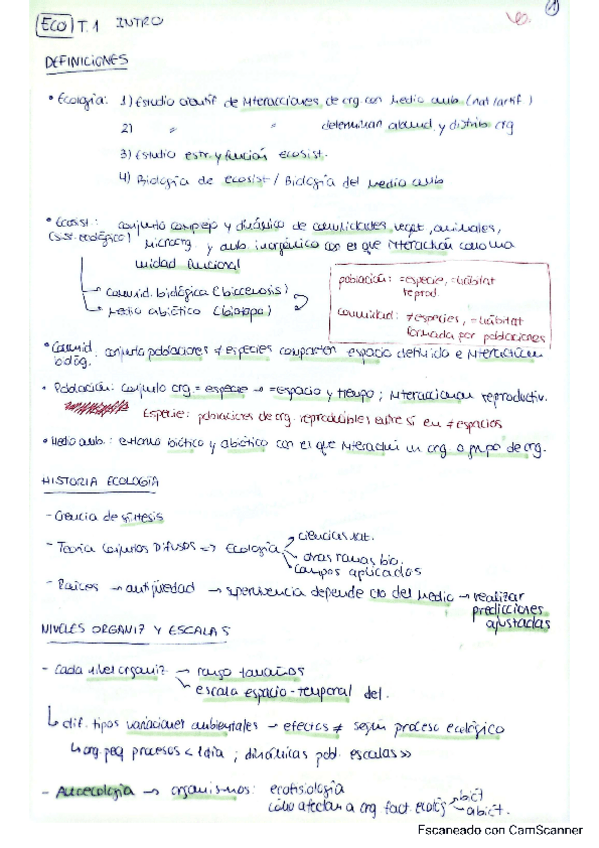 ECO T.1 INTRO
1
DEFINICIONES
• Ecología: 1) Estudio científ de interacciones de org. con medio amb. (nat/artif)
2) " " determinan abund. y distrib org
3) Estudio estr. y función ecosist.
4) Biología de ecosist / Biología del medio amb
• Ecosist.: conjunto complejo y dinámico de comunidades veget, animales,
(sist. ecológico) microorg. y amb. inorgánico con el que interactúan como una
unidad funcional
→ comunid. biológica (biocenosis)
→ Medio abiótico (biotopo)
población: =especie, =hábitat
reprod.
comunidad: ≠especies, =hábitat
formada por poblaciones
• Comunid. conjunto poblaciones ≠ especies comparten espacio definido e interactúan
biológ.
• Población: conjunto org = especie → =espacio y tiempo; interaccionan reproductiv.
Especie: poblaciones de org. reproducibles entre sí en ≠ espacios
• Medio amb.: entorno biótico y abiótico con el que interactúa un org. o grupo de org.
HISTORIA ECOLOGÍA
- Ciencia de síntesis
- Teoría Conjuntos Difusos => Ecología
ciencias nat.
otras ramas bio.
campos aplicados
- Raíces → antigüedad → supervivencia depende cto del medio → realizar
predicciones
ajustadas
NIVELES ORGANIZ Y ESCALAS
- Cada nivel organiz → rango tamaños
→ escala espacio-temporal det.
↳ dif. tipos variaciones ambientales → efectos ≠ según proceso ecológico
↳ org. peq procesos < 1 día ; dinámicas pobl. escalas >>
- Autoecología → organismos: ecofisiología
cómo afectan a org fact. ecológ
biót
abiót.
Escaneado con CamScanner